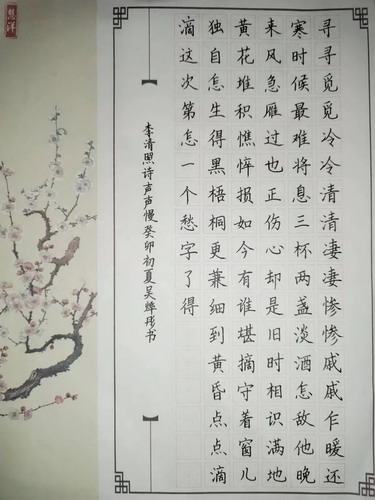 寻寻觅觅冷冷清清凄凄惨惨戚戚乍暖还
寒时候最难将息三杯两盏淡酒怎敌他晚
来风急雁过也正伤心却是旧时相识满地
黄花堆积憔悴损如今有谁堪摘守着窗儿
独自怎生得黑梧桐更蒹细到黄昏点点滴
滴这次第怎一个愁字了得
李清照诗声声慢癸卯初夏吴书